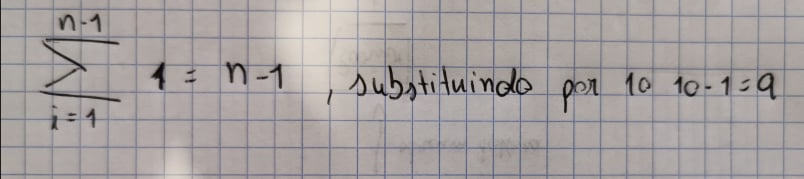 n-1
∑ 1 = n-1 , substituindo por 10 10-1=9
i=1